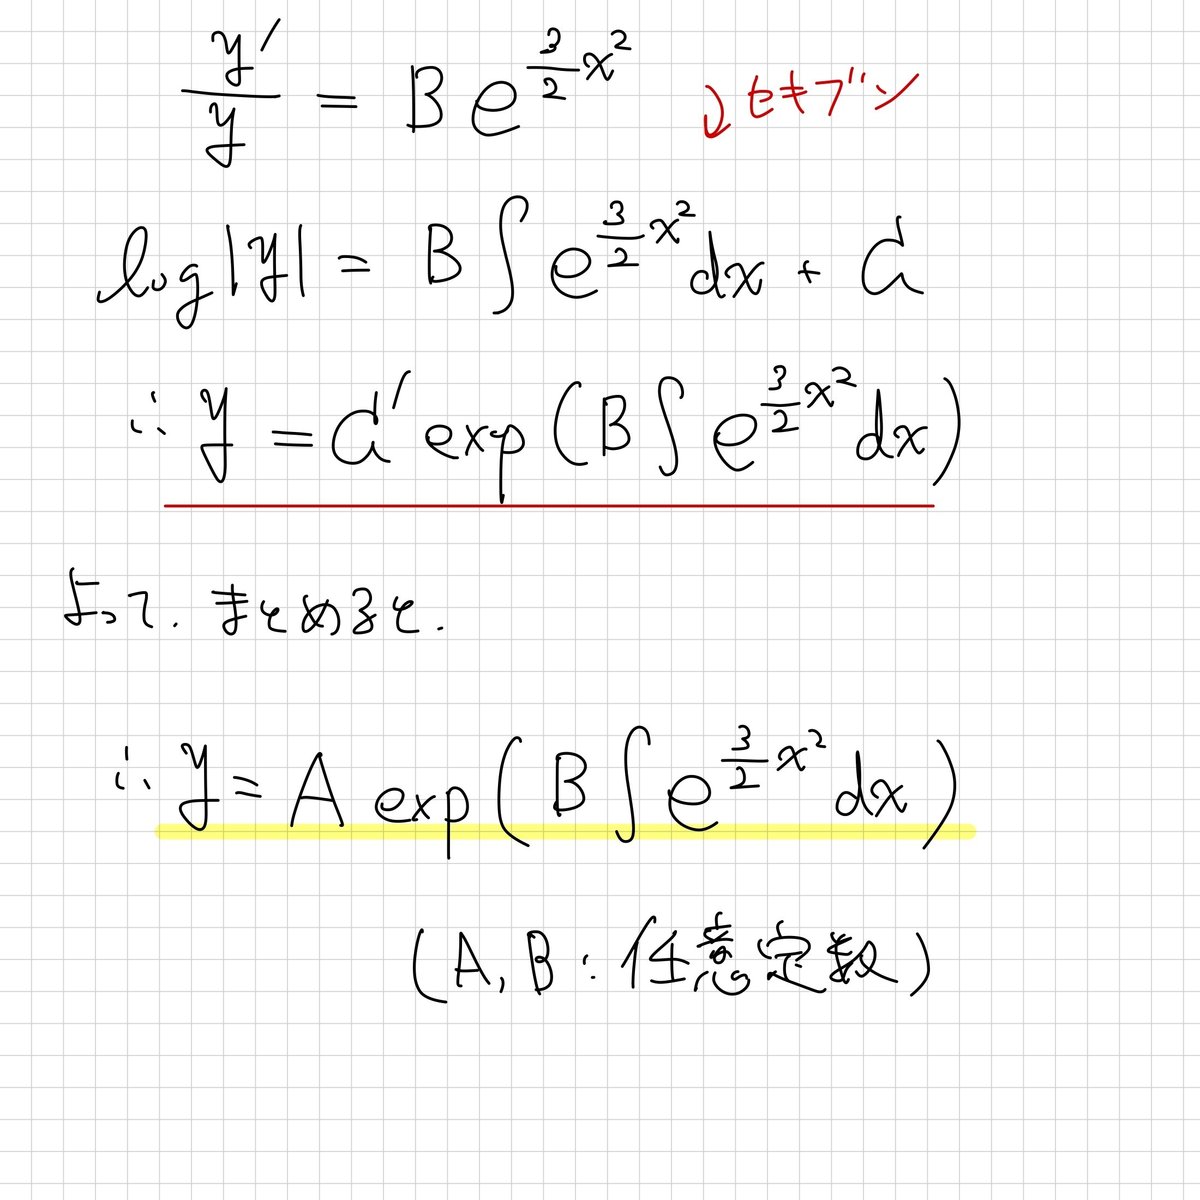 y'/y = B e^{3/2 x^2} ↓セキブン
log|y| = B∫e^{3/2 x^2}dx + C
∴ y = C' exp(B∫e^{3/2 x^2}dx)
よって. まとめると.
∴ y = A exp(B∫e^{3/2 x^2}dx)
(A, B : 任意定数)